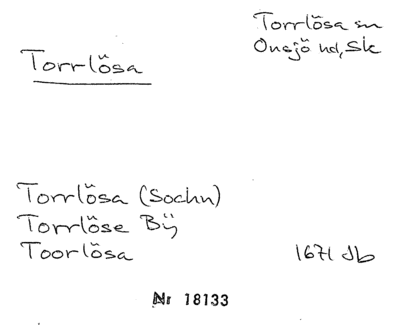 Torrlösa sn
Onsjö hd, Sk
Torrlösa
Torrlösa (Sochn)
Torrlöse Bÿ
Toorlösa 1671 Jb
Nr 18133